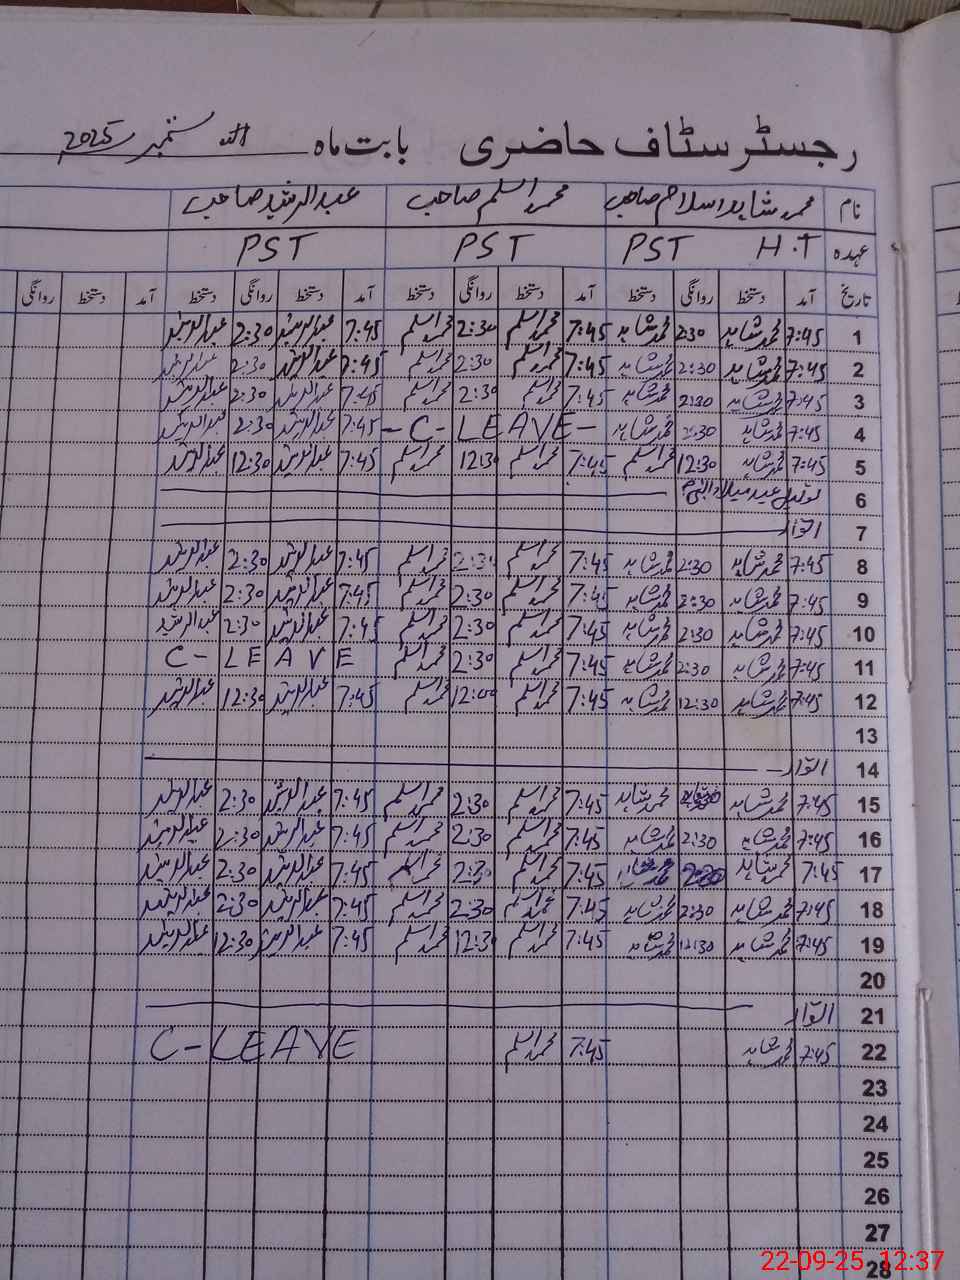 رجسٹر سٹاف حاضری بابت ماہ ستمبر 2025
نام محمد شاہد اسلام صاحب محمد اسلم صاحب عبدالرشید صاحب
عہدہ H.T PST PST PST
تاریخ آمد دستخط روانگی دستخط آمد دستخط روانگی دستخط آمد دستخط روانگی دستخط آمد دستخط روانگی
1 7:45 محمد شاہد 2:30 محمد شاہد 7:45 محمد اسلم 2:30 محمد اسلم 7:45 عبدالرشید 2:30 عبدالرشید
2 7:45 محمد شاہد 2:30 محمد شاہد 7:45 محمد اسلم 2:30 محمد اسلم 7:45 عبدالرشید 2:30 عبدالرشید
3 7:45 محمد شاہد 2:30 محمد شاہد 7:45 محمد اسلم 2:30 محمد اسلم 7:45 عبدالرشید 2:30 عبدالرشید
4 7:45 محمد شاہد 2:30 محمد شاہد - C - LEAVE - 7:45 عبدالرشید 2:30 عبدالرشید
5 7:45 محمد شاہد 12:30 محمد اسلم 7:45 محمد اسلم 12:30 محمد اسلم 7:45 عبدالرشید 12:30 عبدالرشید
6 عید میلاد النبی
7 اتوار
8 7:45 محمد شاہد 2:30 محمد شاہد 7:45 محمد اسلم 2:30 محمد اسلم 7:45 عبدالرشید 2:30 عبدالرشید
9 7:45 محمد شاہد 2:30 محمد شاہد 7:45 محمد اسلم 2:30 محمد اسلم 7:45 عبدالرشید 2:30 عبدالرشید
10 7:45 محمد شاہد 2:30 محمد شاہد 7:45 محمد اسلم 2:30 محمد اسلم 7:45 عبدالرشید 2:30 عبدالرشید
11 7:45 محمد شاہد 2:30 محمد شاہد 7:45 محمد اسلم 2:30 محمد اسلم C - LEAVE
12 7:45 محمد شاہد 12:30 محمد شاہد 7:45 محمد اسلم 12:00 محمد اسلم 7:45 عبدالرشید 12:30 عبدالرشید
13
14 اتوار
15 7:45 محمد شاہد محمد شاہد 7:45 محمد اسلم 2:30 محمد اسلم 7:45 عبدالرشید 2:30 عبدالرشید
16 7:45 محمد شاہد 2:30 محمد شاہد 7:45 محمد اسلم 2:30 محمد اسلم 7:45 عبدالرشید 2:30 عبدالرشید
17 7:45 محمد شاہد 2:30 محمد شاہد 7:45 محمد اسلم 2:30 محمد اسلم 7:45 عبدالرشید 2:30 عبدالرشید
18 7:45 محمد شاہد 2:30 محمد شاہد 7:45 محمد اسلم 2:30 محمد اسلم 7:45 عبدالرشید 2:30 عبدالرشید
19 7:45 محمد شاہد 12:30 محمد شاہد 7:45 محمد اسلم 12:30 محمد اسلم 7:45 عبدالرشید 12:30 عبدالرشید
20
21 اتوار
22 7:45 محمد شاہد 7:45 محمد اسلم C - LEAVE
23
24
25
26
27
28
22-09-25 12:37